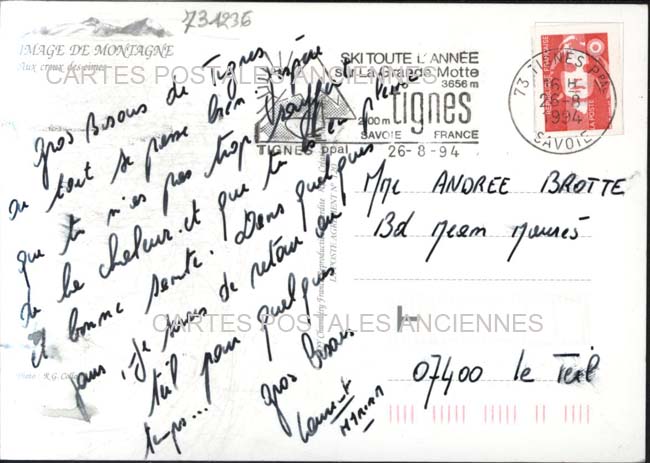 731236
IMAGE DE MONTAGNE
Aux creux des cimes
CARTES POSTALES ANCIENNES
Gros Bisous de Tignes
ou tout se passe bien espère
que tu n'as pas trop souffert
de la chaleur. et que tu es en pleine
et bonne santé. Dans quelques
jours, Je serais de retour au
teil pour quelques
temps... Gros Bisous
Laurent
MYRIAM
SKI TOUTE L'ANNÉE
La Grande Motte
3656 m
tignes
2100 m
SAVOIE FRANCE
TIGNES ppal 26-8-94
73 TIGNES Ppal
16 H
26-8
1994
SAVOIE
LA POSTE
Mme ANDREE BROTTE
Bd Jean Jaurès
CARTES POSTALES ANCIENNES
07400 le Teil